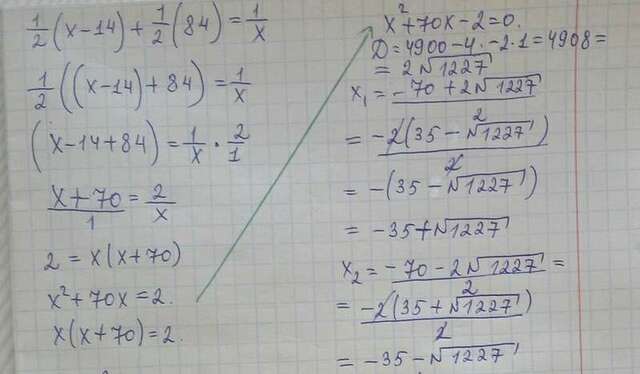 1/2 (x-14) + 1/2 (84) = 1/x
1/2 ((x-14) + 84) = 1/x
(x-14+84) = 1/x · 2/1
x+70/1 = 2/x
2 = x(x+70)
x²+70x = 2.
x(x+70) = 2.
x²+70x-2=0.
D = 4900-4·-2·1 = 4908 =
= 2√1227
x₁ = -70+2√1227/2
= -2(35-√1227)/2
= -(35-√1227)
= -35+√1227
x₂ = -70-2√1227/2 =
= -2(35+√1227)/2
= -35-√1227